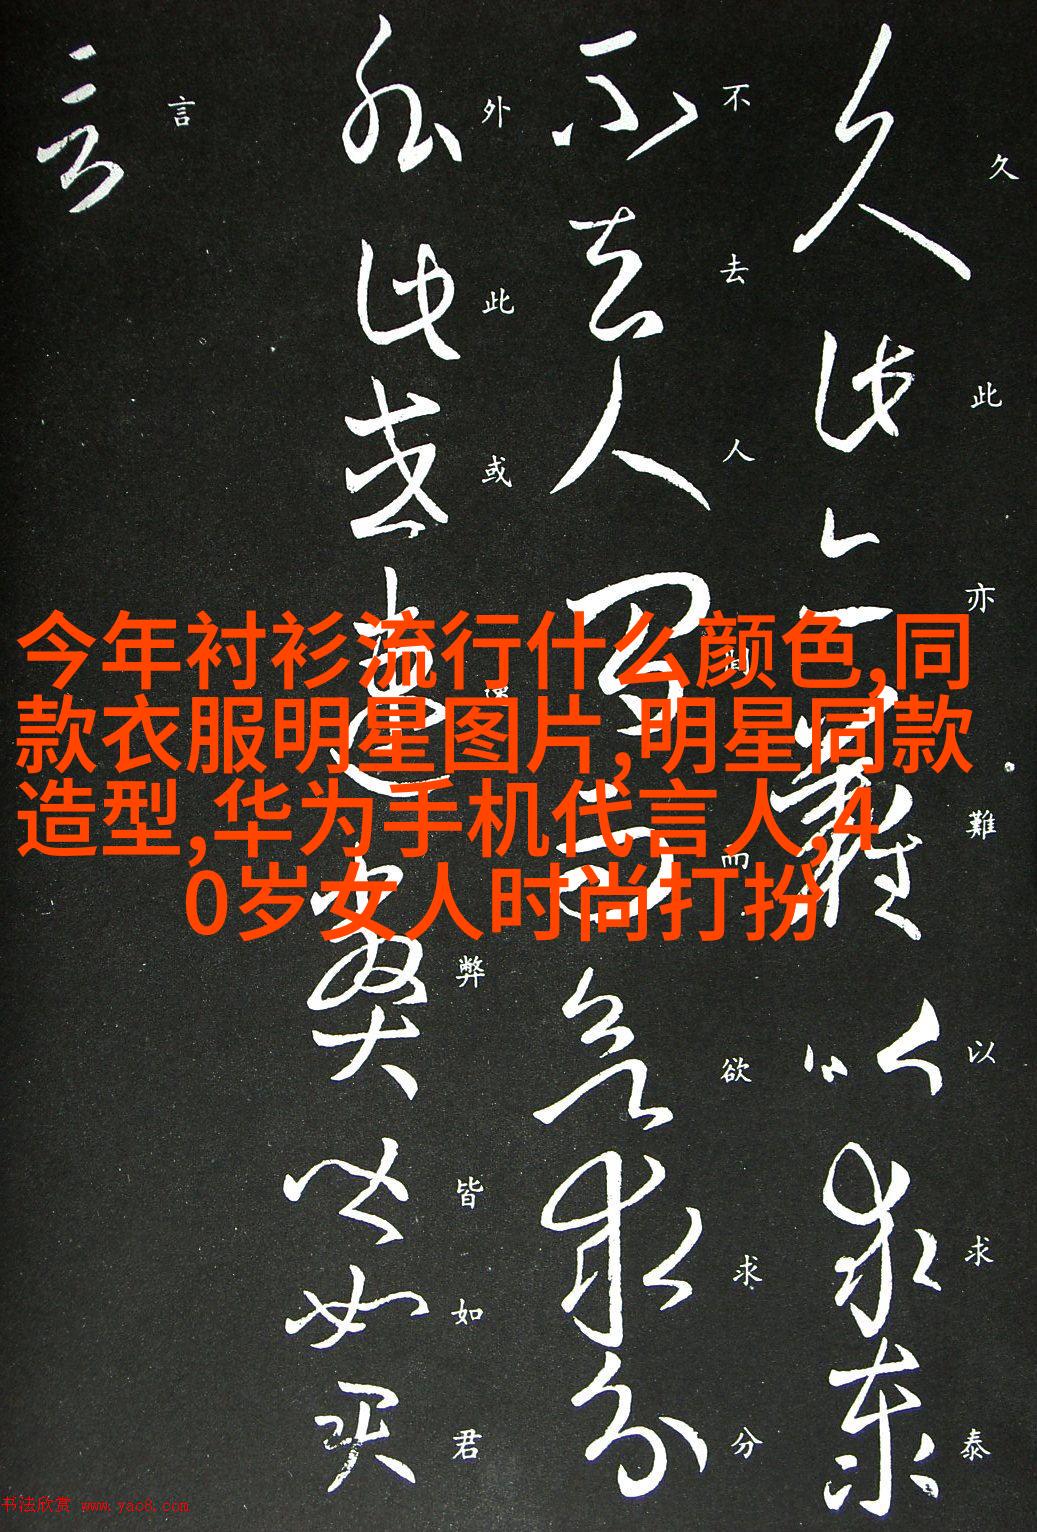 久此亦難以求泰
不去人間而欲求分
外此或遇弊皆如君
言
今年衬衫流行什么颜色,同
款衣服明星图片,明星同款
造型,华为手机代言人,4
0岁女人时尚打扮
书法欣赏 www.yac8.com